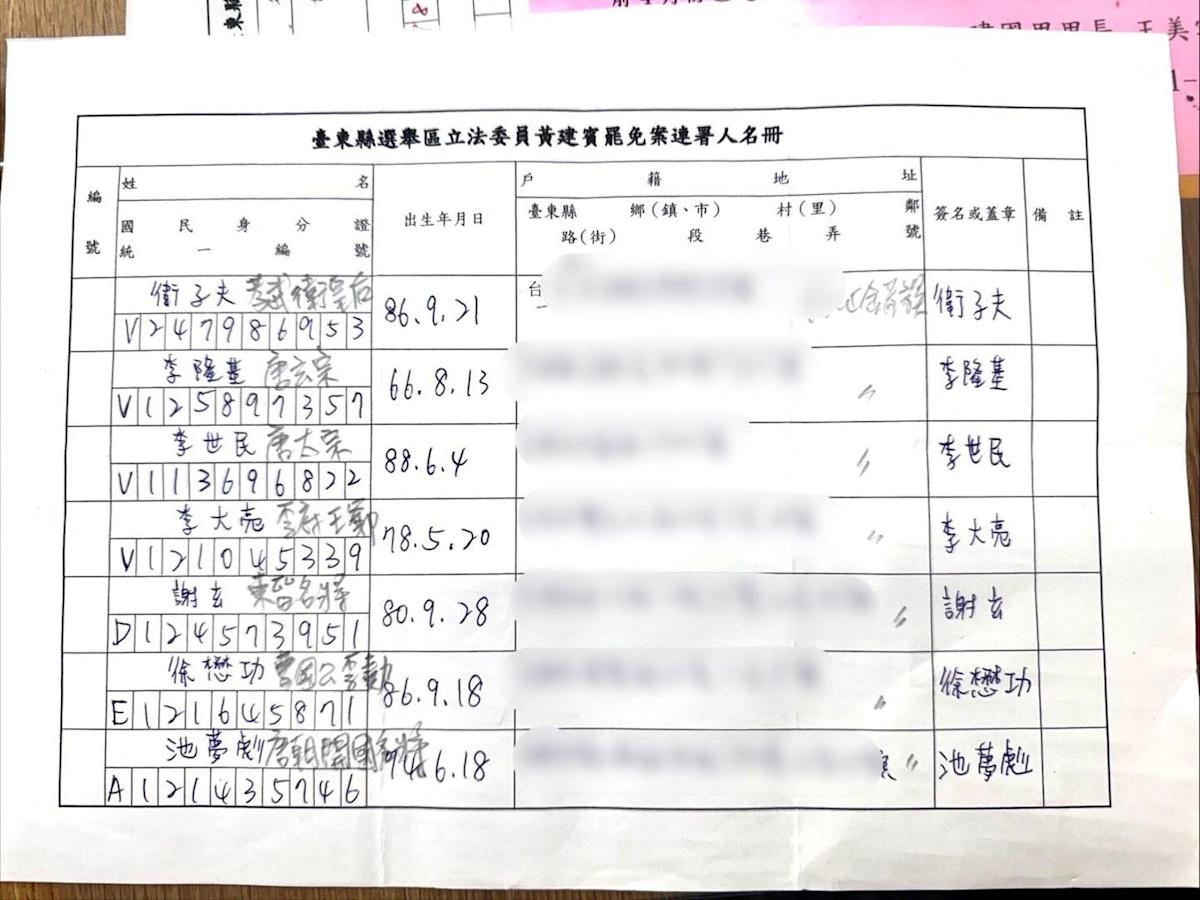 前4月份
東縣
8
建國里里長 王美
臺東縣選舉區立法委員黃建賓罷免案連署人名冊
編號
姓名
國民身分證
統一編號
出生年月日
戶籍地址
臺東縣 鄉(鎮、市) 村(里) 鄰
路(街) 段 巷 弄 號
簽名或蓋章
備註
衛子夫 孝武衛皇后
V247986953
86.9.21
台
衛子夫
李隆基 唐玄宗
V125897357
66.8.13
〃
李隆基
李世民 唐太宗
V113696822
88.6.4
〃
李世民
李大亮
V121045339
78.5.20
〃
李大亮
謝玄 東晉名將
D124573951
80.9.28
〃
謝玄
徐懋功 曹國公李勣
E121645871
86.9.18
〃
徐懋功
池夢彪 唐朝開國名將
A121435746
94.6.18
〃
池夢彪